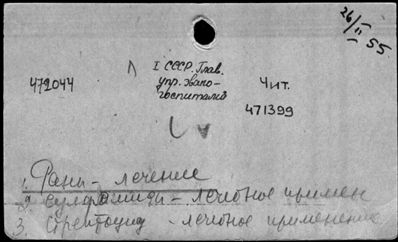 26/II 55
I СССР. Глав.
упр. эвако-
госпиталей
472044
Чит.
471399
1. Раны - лечение
2. Сульфамиды - лечебное примен
3. Стрептоцид - лечебное применение